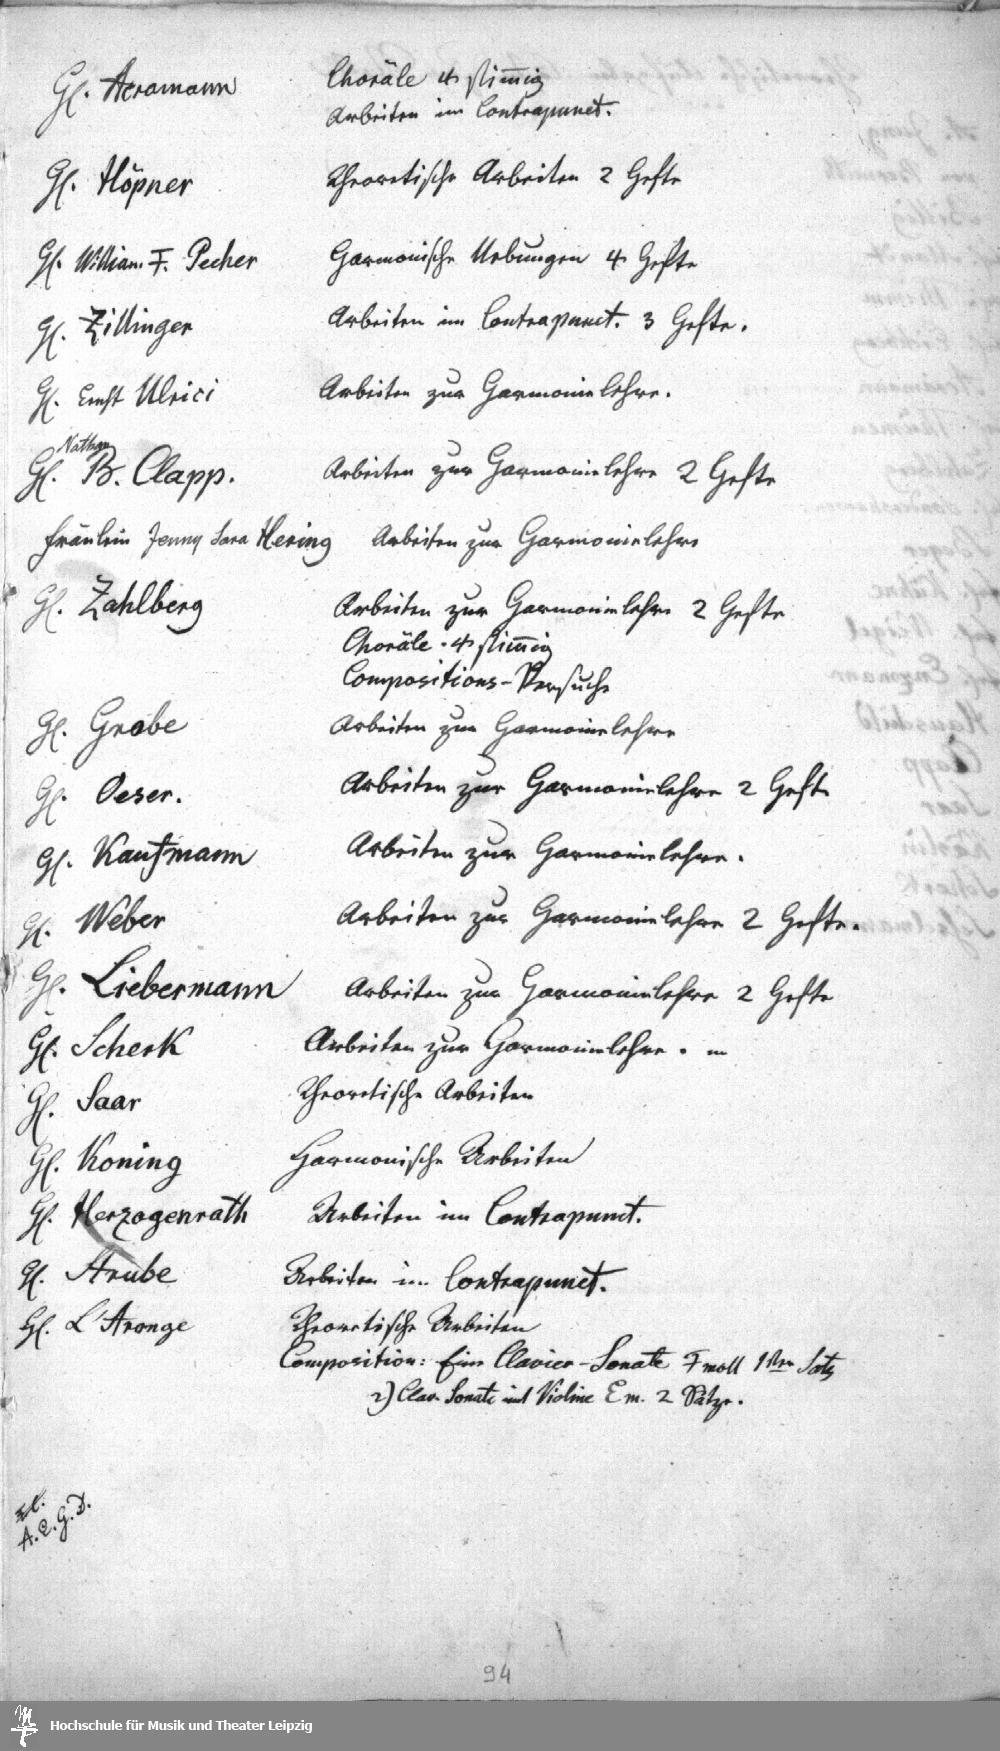 H. Acromann Choräle 4 stimmig
Arbeiten im Contrapunct.
H. Höpner Theoretische Arbeiten 2 Hefte
H. William F. Pecher Harmonische Uebungen 4 Hefte
H. Zillinger Arbeiten im Contrapunct. 3 Hefte.
H. Ernst Ulrici Arbeiten zur Harmonielehre.
Nathan
H. B. Clapp. Arbeiten zur Harmonielehre 2 Hefte
Fräulein Jenny Sara Hering Arbeiten zur Harmonielehre
H. Zahlberg Arbeiten zur Harmonielehre 2 Hefte
Choräle 4 stimmig
Compositions-Versuche
H. Grabe Arbeiten zur Harmonielehre
H. Oeser. Arbeiten zur Harmonielehre 2 Hefte
H. Kaufmann Arbeiten zur Harmonielehre.
H. Weber Arbeiten zur Harmonielehre 2 Hefte.
H. Liebermann Arbeiten zur Harmonielehre 2 Hefte
H. Scherk Arbeiten zur Harmonielehre.
H. Saar Theoretische Arbeiten
H. Koning Harmonische Arbeiten
H. Herzogenrath Arbeiten im Contrapunct.
H. Strube Arbeiten im Contrapunct.
H. L'Aronge Theoretische Arbeiten
Composition: Eine Clavier-Sonate F moll 1ster Satz
2) Clav. Sonate mit Violine E m. 2 Sätze.
A. E. G. D.
94
Hochschule für Musik und Theater Leipzig